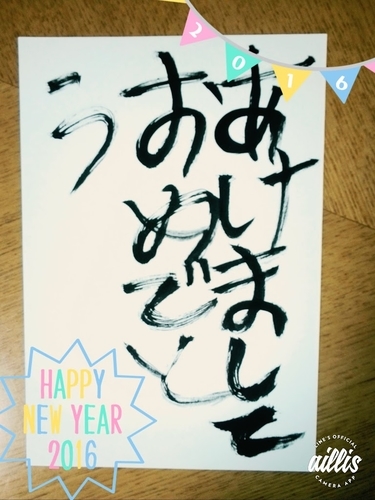 2016
あけまして
おめでと
う
HAPPY
NEW YEAR
2016
LINE'S OFFICIAL
aillis
CAMERA APP